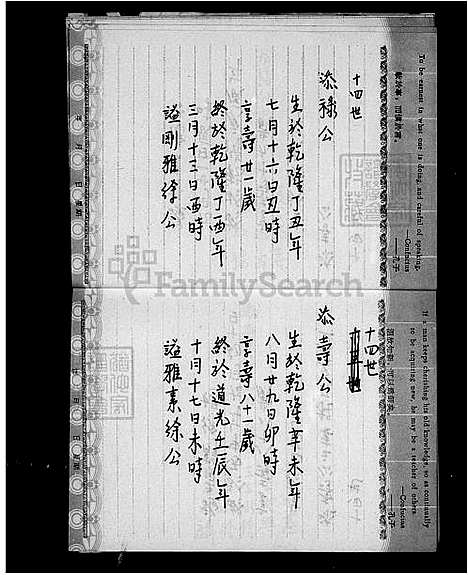 To be earnest in what one is doing, and careful of speaking.
—Confucius
敏於事，而慎於言。
——孔子
十四世
添祿公
生於乾隆丁丑年
七月十六日丑時
享壽廿一歲
終於乾隆丁酉年
三月十三日酉時
諡剛雅徐公
年 月 日 星期
If a man keeps cherishing his old knowledge, so as continually
to be acquiring new, he may be a teacher of others.
—Confucius
——孔子
十四世
添壽公
生於乾隆辛未年
八月廿九日卯時
享壽八十一歲
終於道光壬辰年
十月十七日未時
諡雅素徐公
年 月 日 星期
FamilySearch